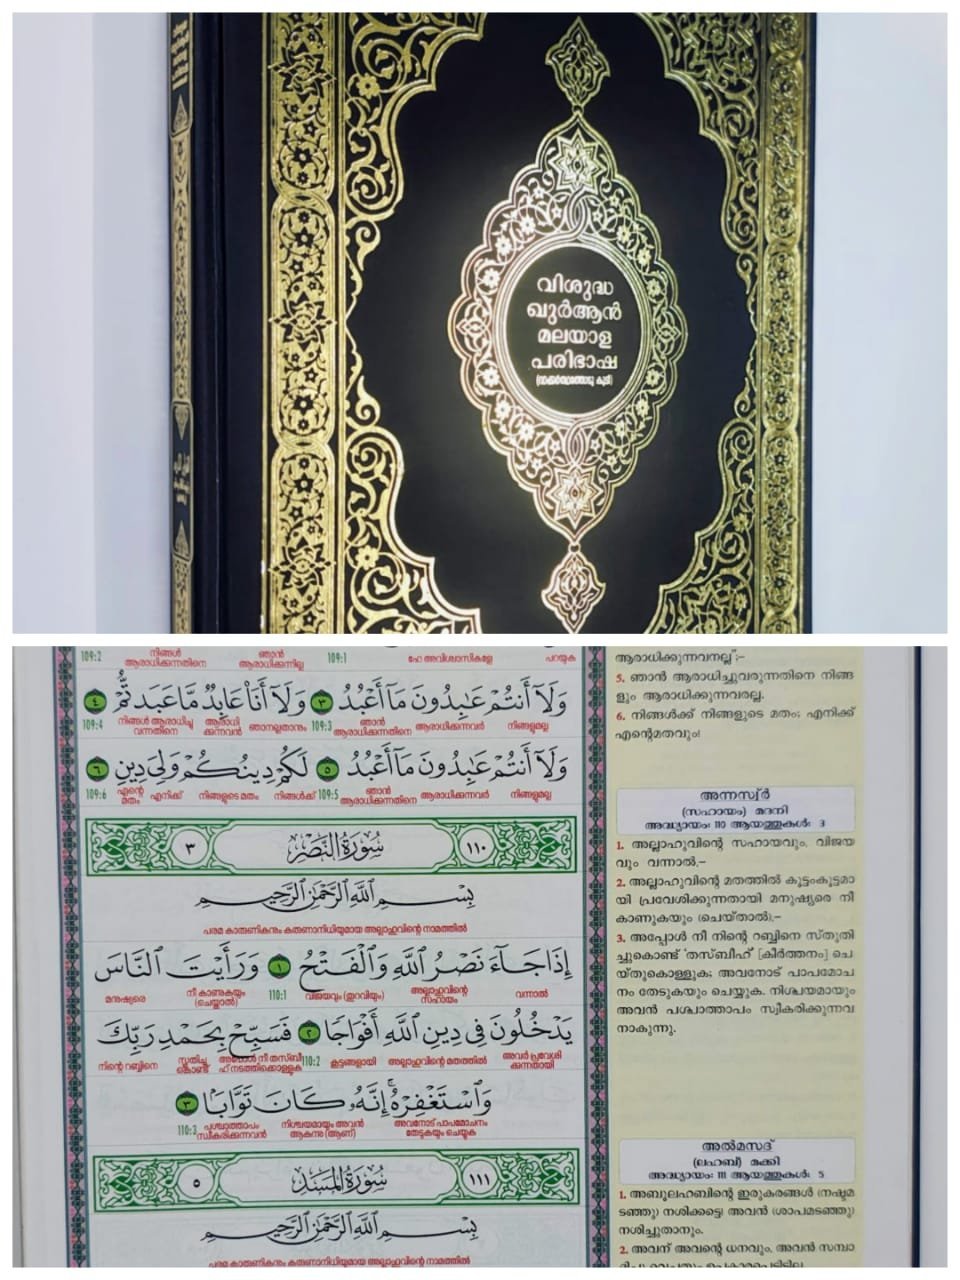 വിശുദ്ധ
ഖുർആൻ
മലയാള
പരിഭാഷ
(വാക്കർത്ഥത്തോടു കൂടി)
109:2 നിങ്ങൾ ആരാധിക്കുന്നതിനെ ഞാൻ ആരാധിക്കുന്നില്ല 109:1 ഹേ അവിശ്വാസികളേ പറയുക
وَلَآ أَنتُمْ عَٰبِدُونَ مَآ أَعْبُدُ ٣ وَلَآ أَنَا۠ عَابِدٌ مَّا عَبَدتُّمْ ٤
109:4 നിങ്ങൾ ആരാധിച്ചുവന്നതിനെ ആരാധിക്കുന്നവൻ ഞാനല്ലതാനും 109:3 ഞാൻ ആരാധിക്കുന്നതിനെ ആരാധിക്കുന്നവർ നിങ്ങളുമല്ല
وَلَآ أَنتُمْ عَٰبِدُونَ مَآ أَعْبُدُ ٥ لَكُمْ دِينُكُمْ وَلِىَ دِينِ ٦
109:6 എന്റെ മതം എനിക്ക് നിങ്ങളുടെ മതം നിങ്ങൾക്ക് 109:5 ഞാൻ ആരാധിക്കുന്നതിനെ ആരാധിക്കുന്നവർ നിങ്ങളുമല്ല
١١٠ سُورَةُ النَّصْرِ ٣
بِسْمِ ٱللَّهِ ٱلرَّحْمَٰنِ ٱلرَّحِيمِ
പരമ കാരുണികനും കരുണാനിധിയുമായ അല്ലാഹുവിന്റെ നാമത്തിൽ
إِذَا جَآءَ نَصْرُ ٱللَّهِ وَٱلْفَتْحُ ١ وَرَأَيْتَ ٱلنَّاسَ
മനുഷ്യരെ നീ കാണുകയും (ചെയ്താൽ) 110:1 വിജയവും (തുറവിയും) അല്ലാഹുവിന്റെ സഹായം വന്നാൽ
يَدْخُلُونَ فِى دِينِ ٱللَّهِ أَفْوَاجًا ٢ فَسَبِّحْ بِحَمْدِ رَبِّكَ
നിന്റെ റബ്ബിനെ സ്തുതിച്ചു കൊണ്ട് അപ്പോൾ നീ തസ്ബീഹ് നടത്തിക്കൊള്ളുക 110:2 കൂട്ടങ്ങളായി അല്ലാഹുവിന്റെ മതത്തിൽ അവർ പ്രവേശിക്കുന്നതായി
وَٱسْتَغْفِرْهُ ۚ إِنَّهُۥ كَانَ تَوَّابًۢا ٣
110:3 പശ്ചാത്താപം സ്വീകരിക്കുന്നവൻ നിശ്ചയമായും അവൻ ആകുന്നു (ആണ്) അവനോട് പാപമോചനം തേടുകയും ചെയ്യുക
١١١ سُورَةُ المَسَدِ ٥
بِسْمِ ٱللَّهِ ٱلرَّحْمَٰنِ ٱلرَّحِيمِ
പരമ കാരുണികനും കരുണാനിധിയുമായ അല്ലാഹുവിന്റെ നാമത്തിൽ
ആരാധിക്കുന്നവനല്ല;-
5. ഞാൻ ആരാധിച്ചുവരുന്നതിനെ നിങ്ങ
ളും ആരാധിക്കുന്നവരല്ല.
6. നിങ്ങൾക്ക് നിങ്ങളുടെ മതം; എനിക്ക്
എന്റെമതവും!
അന്നസ്വ്ർ
(സഹായം) മദനി
അദ്ധ്യായം: 110 ആയത്തുകൾ: 3
1. അല്ലാഹുവിന്റെ സഹായവും, വിജയ
വും വന്നാൽ,–
2. അല്ലാഹുവിന്റെ മതത്തിൽ കൂട്ടംകൂട്ടമാ
യി പ്രവേശിക്കുന്നതായി മനുഷ്യരെ നീ
കാണുകയും (ചെയ്താൽ),–
3. അപ്പോൾ നീ നിന്റെ റബ്ബിനെ സ്തുതി
ച്ചുകൊണ്ട് 'തസ്ബീഹ്' [കീർത്തനം] ചെ
യ്തുകൊള്ളുക; അവനോട് പാപമോച
നം തേടുകയും ചെയ്യുക. നിശ്ചയമായും
അവൻ പശ്ചാത്താപം സ്വീകരിക്കുന്നവ
നാകുന്നു.
അൽമസദ്
(ലഹബ്) മക്കി
അദ്ധ്യായം: 111 ആയത്തുകൾ: 5
1. അബൂലഹബിന്റെ ഇരുകരങ്ങൾ (നഷ്ടമ
ടഞ്ഞു) നശിക്കട്ടെ! അവൻ (ശാപമടഞ്ഞു)
നശിച്ചുതാനും.
2. അവന് അവന്റെ ധനവും, അവൻ സമ്പാ